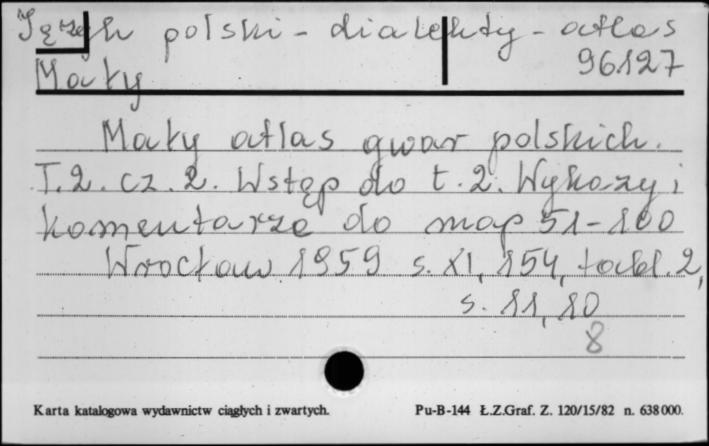 Język polski - dialekty - atlas
96127
Mały
Mały atlas gwar polskich.
T.2. cz. 2. Wstęp do t. 2. Wykazy i
komentarze do map 51-100
Wrocław 1959 s. XI, 154, tabl. 2,
s. 11, 10
8
Karta katalogowa wydawnictw ciągłych i zwartych. Pu-B-144 Ł.Z.Graf. Z. 120/15/82 n. 638000.